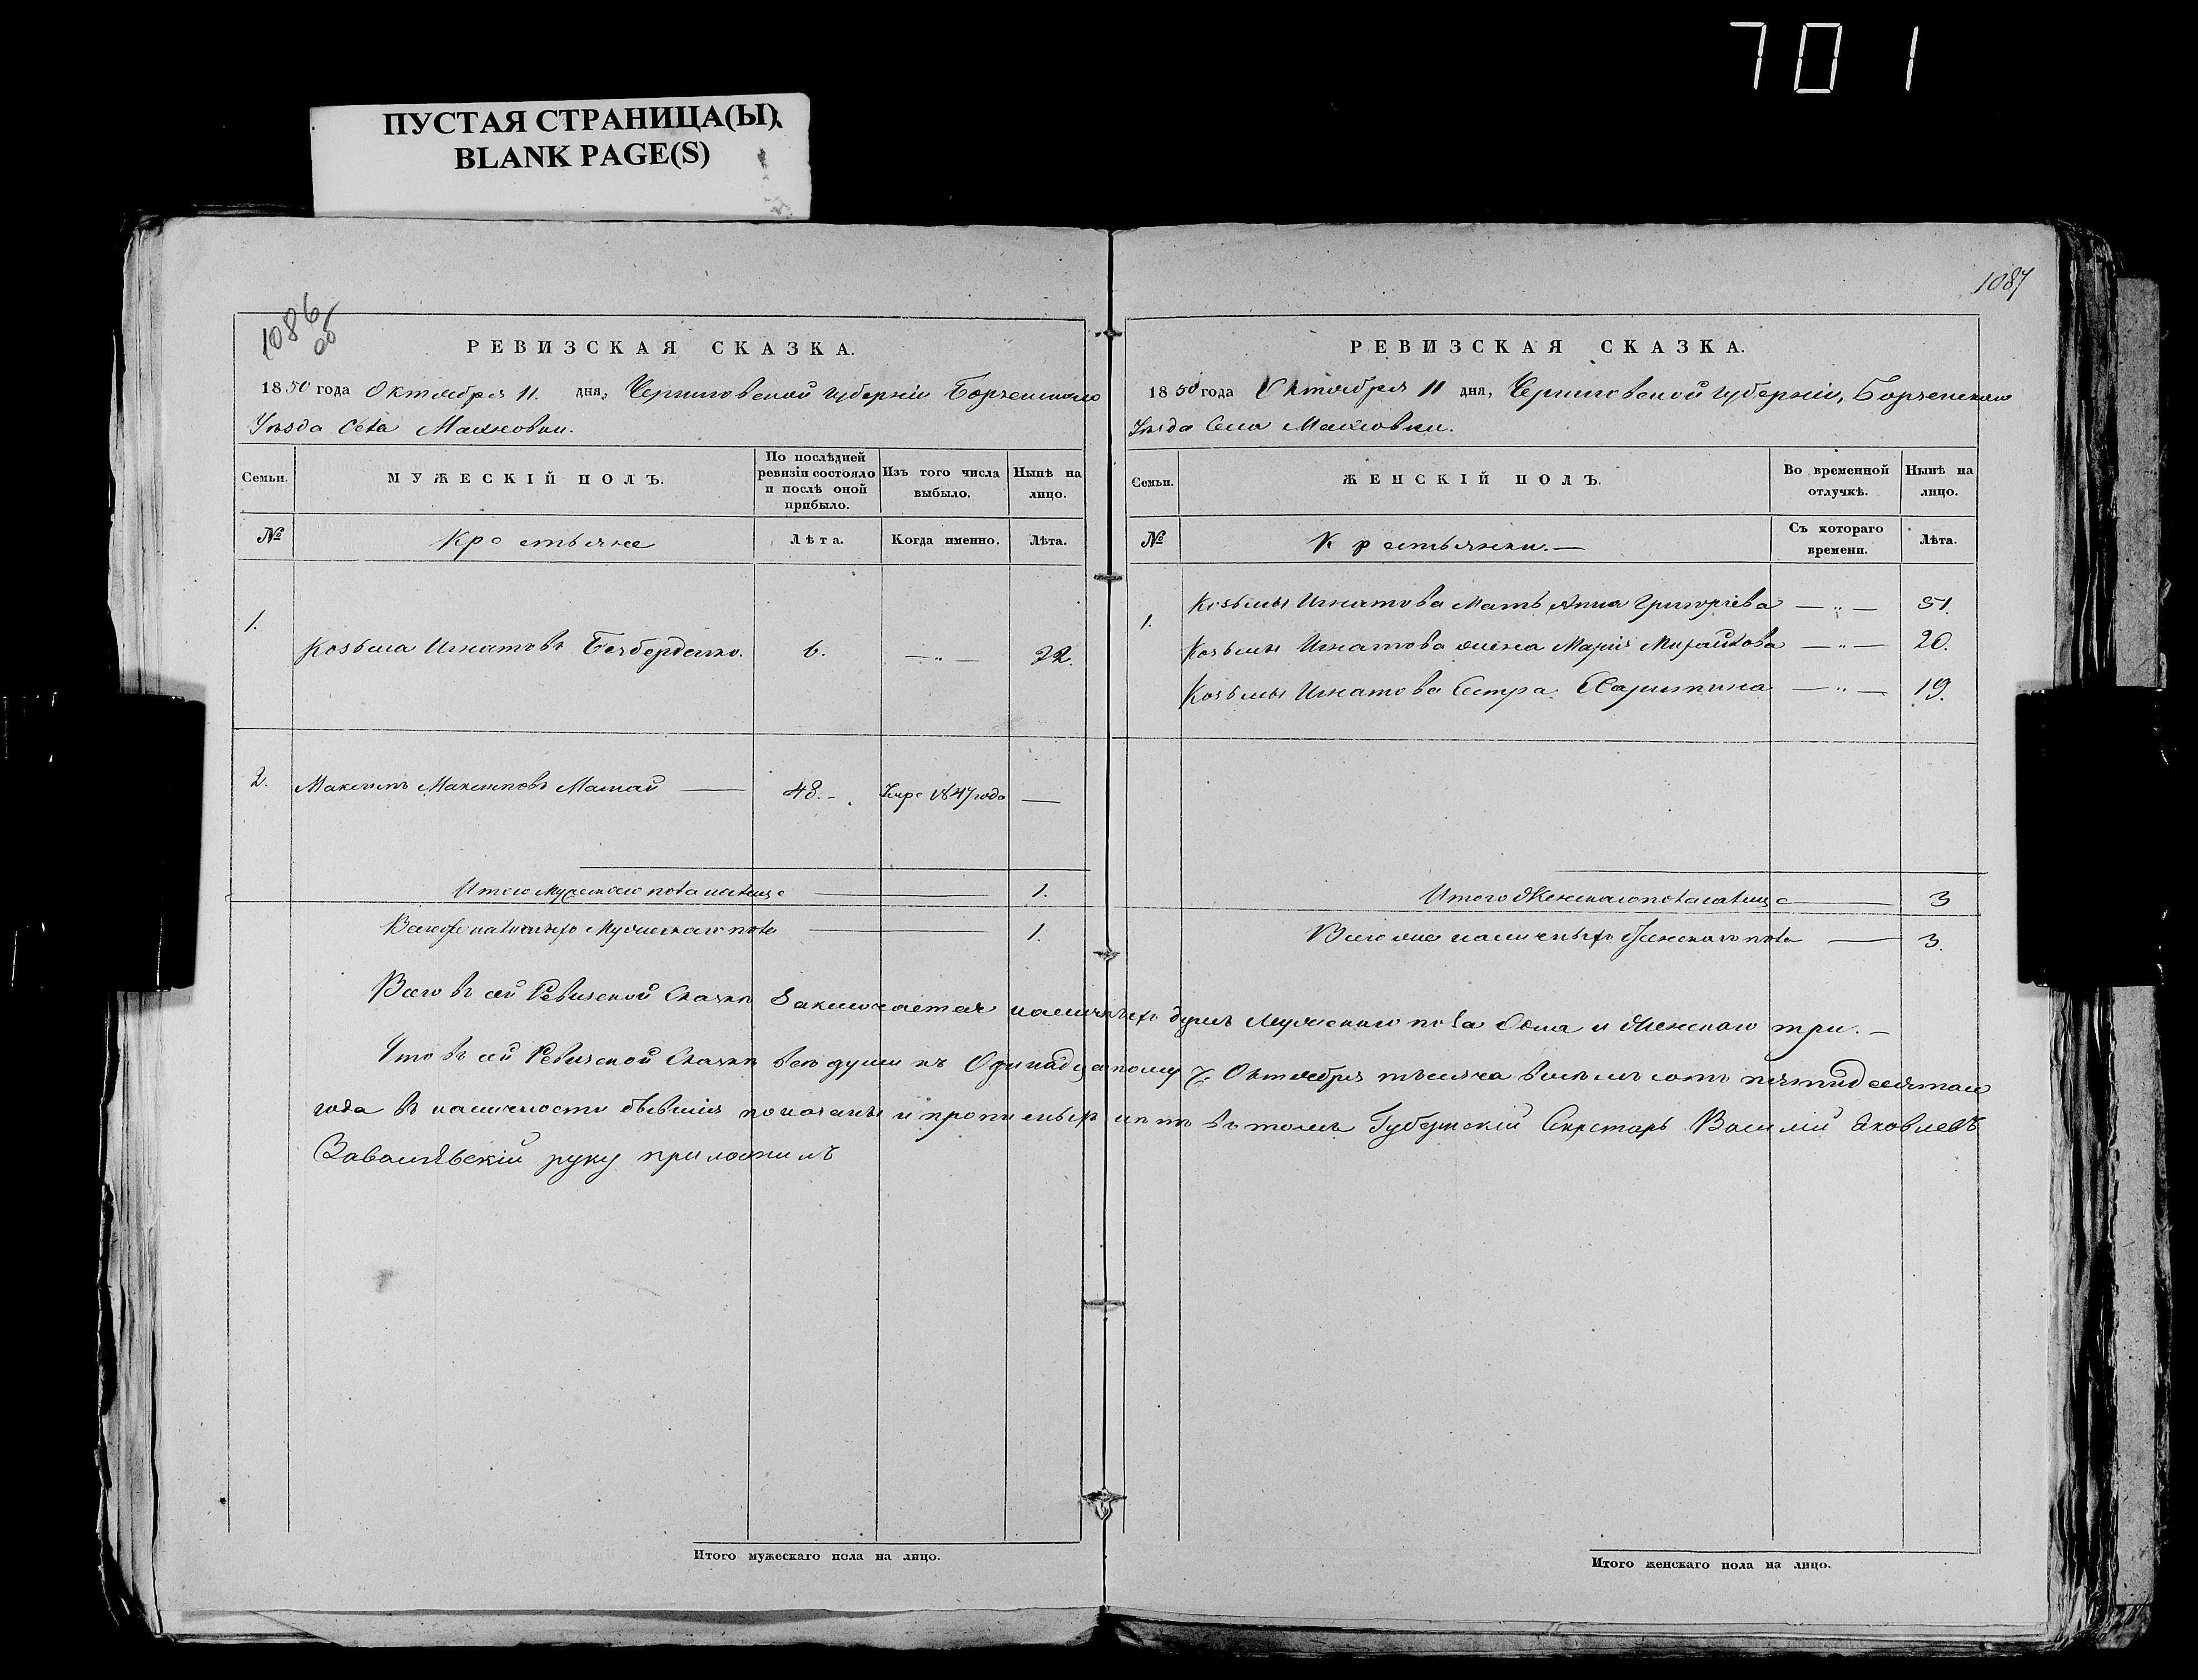 701
ПУСТАЯ СТРАНИЦА(Ы)
BLANK PAGE(S)
1086 об
РЕВИЗСКАЯ СКАЗКА.
1850 года Октября 11. дня, Черниговской губерніи Борзенскаго
Уѣзда Села Махновки.
Семьи. МУЖЕСКІЙ ПОЛЪ. По послѣдней ревизіи состояло и послѣ оной прибыло. Изъ того числа выбыло. Нынѣ на лицо.
№ Крестьяне Лѣта. Когда именно. Лѣта.
1. Козьма Игнатовъ Безберденко. 6. — „ — 22.
2. Максимъ Максимовъ Мамай — 48. — Умре 1847 года —
Итого Мужескаго пола налице — 1.
Всего же наличныхъ Мужескаго пола — 1.
1087
РЕВИЗСКАЯ СКАЗКА.
1850 года Октября 11 дня, Черниговской губерніи, Борзенскаго
Уѣзда Села Махновки.
Семьи. ЖЕНСКІЙ ПОЛЪ. Во временной отлучкѣ. Нынѣ на лицо.
№ Крестьянки. — Съ котораго времени. Лѣта.
1. Козьмы Игнатова Мать Анна Григоріева — „ — 51.
Козьмы Игнатова жена Марія Михайлова — „ — 20.
Козьмы Игнатова Сестра Харитина — „ — 19.
Итого Женскаго пола налице — 3
Всего же наличныхъ Женскаго пола — 3.
Всего въ сей Ревизской Сказкѣ Заключается наличныхъ душъ Мужескаго пола Одна и Женскаго три. —
Что въ сей Ревизской Сказкѣ всѣ души къ Одинадцатому ч. Октября тысяча восемь сотъ пятидесятаго
года въ наличности бывшія показаны и прописныхъ нѣтъ въ томъ Губернскій Секретарь Василій Яковлевъ
руку приложилъ
Итого мужескаго пола на лицо.
Итого женскаго пола на лицо.